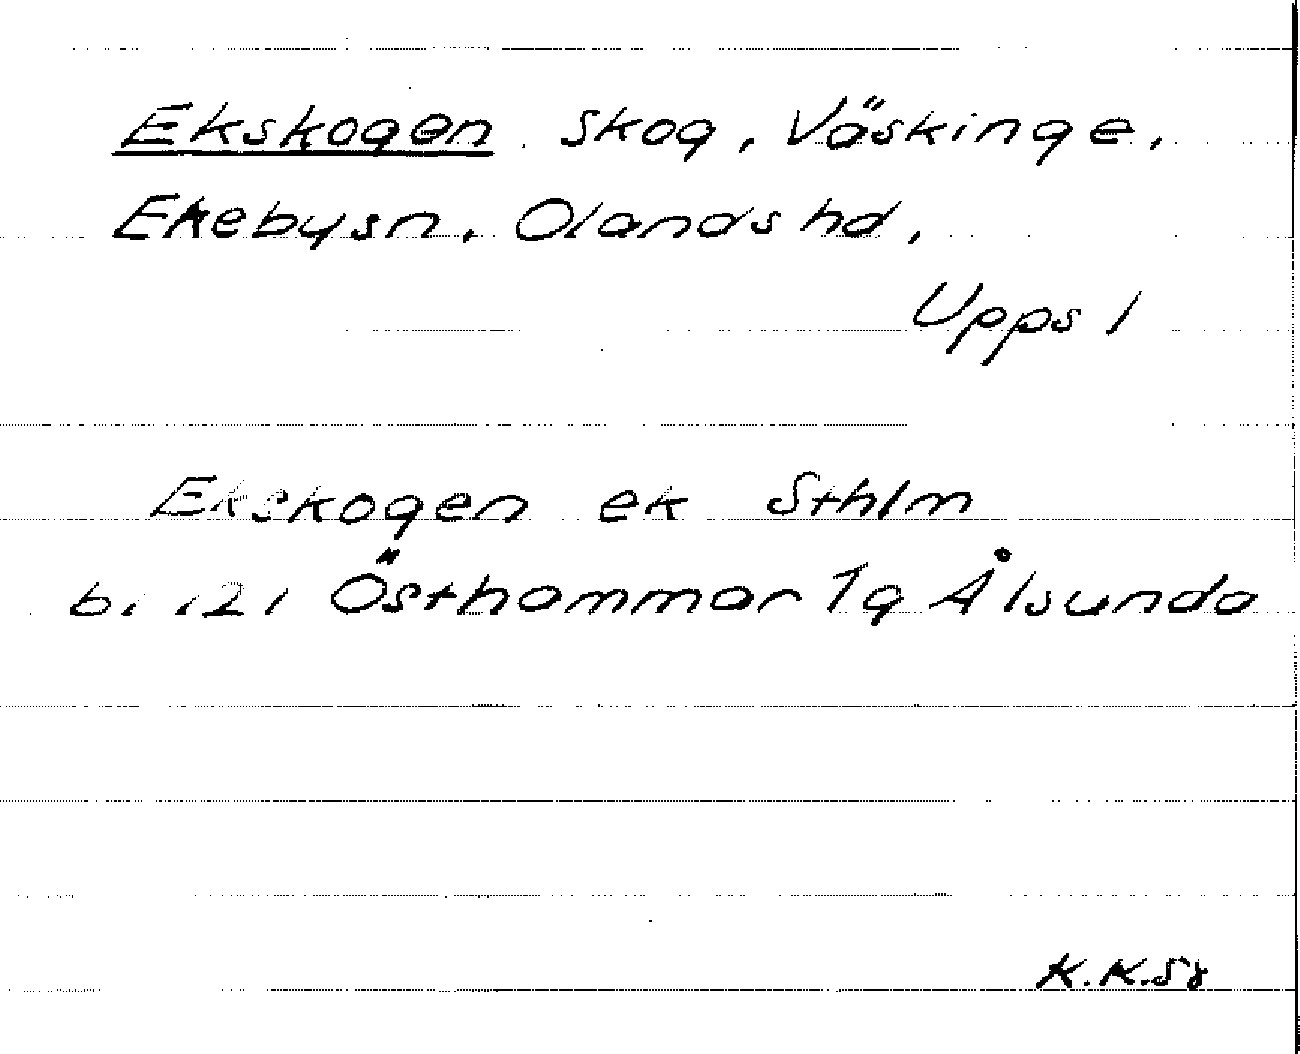 Ekskogen skog, Väskinge,
Ekebysn, Olands hd,
Upps l
Ekskogen ek Sthlm
bl 121 Östhammar 1g Ålsunda
K.K.58